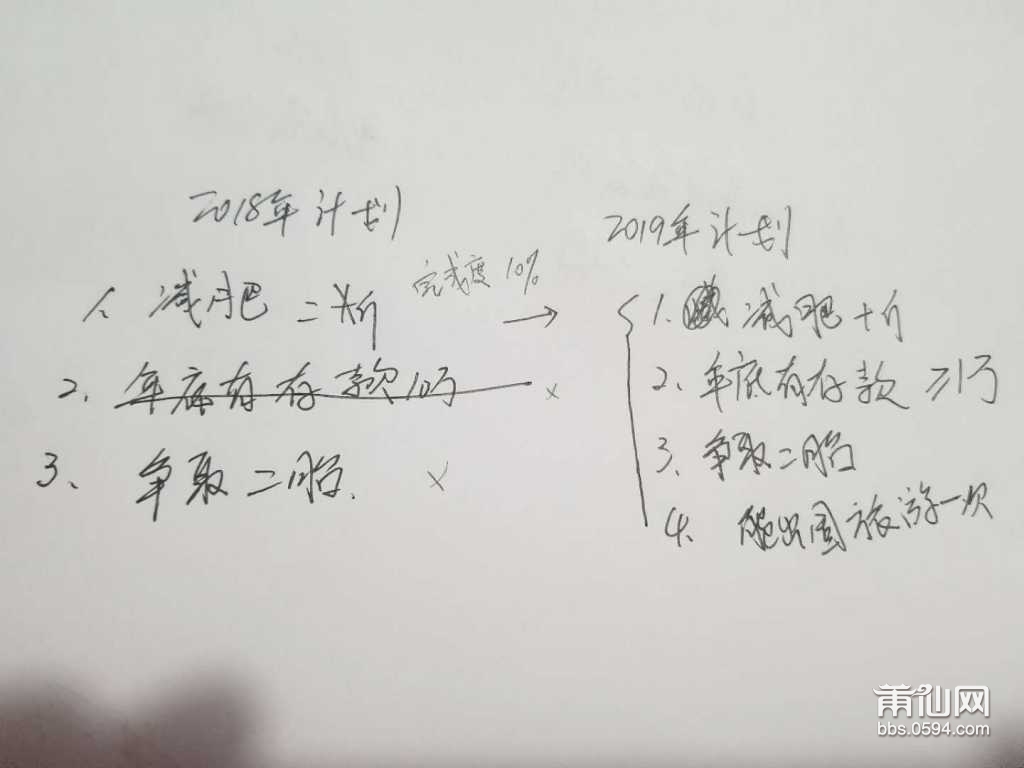 2018年计划
1、减肥二十斤
完成度10%
2、年底有存款10万
3、争取二胎.
2019年计划
1、减肥十斤
2、年底有存款≥1万
3、争取二胎
4、能出国旅游一次
莆仙网
bbs.0594.com